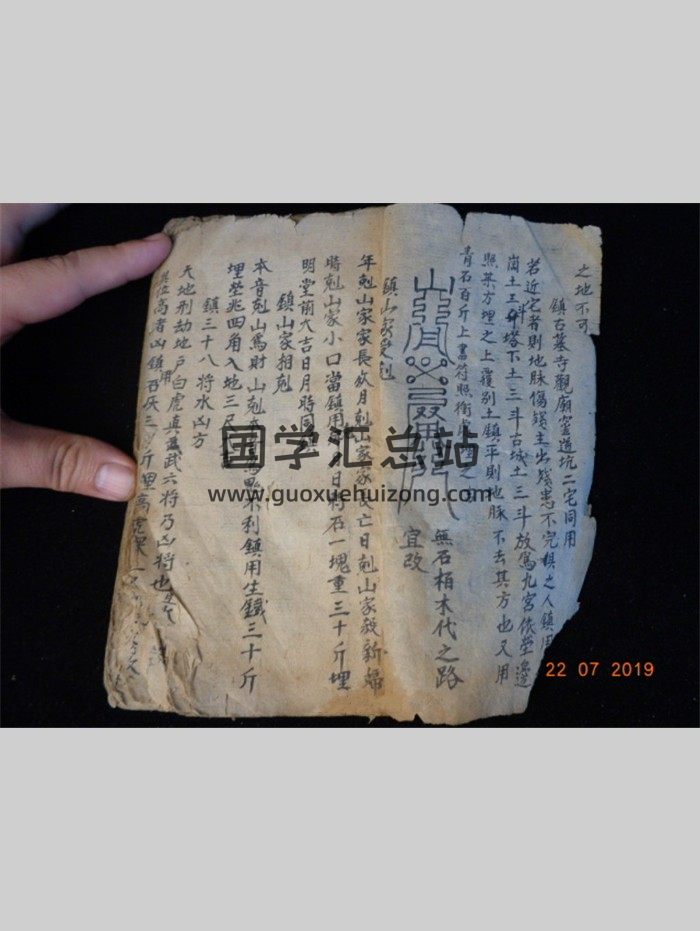 之地不可
鎮古墓寺觀廟窑邉坑二宅同用
若近宅者則地脉傷 主出殘患不完 之人鎮用
崗土三斗塔下土三斗古城土三斗放爲九宫依塋
照某方埋之上覆别土鎮平則地脉不去其方也又用
青石百斤上書符照 之
無石栢木代之路
宜改
鎮山家 剋
年剋山家家長 月剋山家家 亡日剋山家殺新婦
時剋山家小口當鎮用 日將石一塊重三十斤埋
明堂前大吉日月時同
鎮山家相剋
本音剋山爲財山剋 不利鎮用生鐵三十斤
埋塋兆四角入地三尺
鎮三十八將水凶方
天地刑劫地户白虎真 武六將乃凶將也
高者凶鎮用百灰三 斤埋高
国学汇总站
www.guoxuehuizong.com
22 07 2019